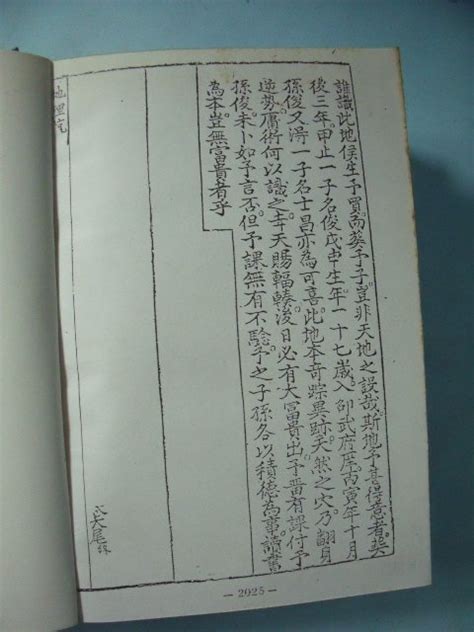 誰識此地侯生予買而葬予子豈非天地之設哉。斯地予甚得意者。葬
後三年甲止一子名俊戊申生年一十七歲。入邵武府庠。丙寅年十月
孫俊又得一子名士昌亦為可喜。此地本奇踪異跡。天然之穴。乃翻身
逆勢。庸術何以識之。幸天賜輻輳。後日必有大富貴出。予嘗有課付予
孫俊未卜如予言否。但予課無有不驗。予之子孫各以積德為事。讀書
為本。豈無富貴者乎
地理
大尾
— 2925 —